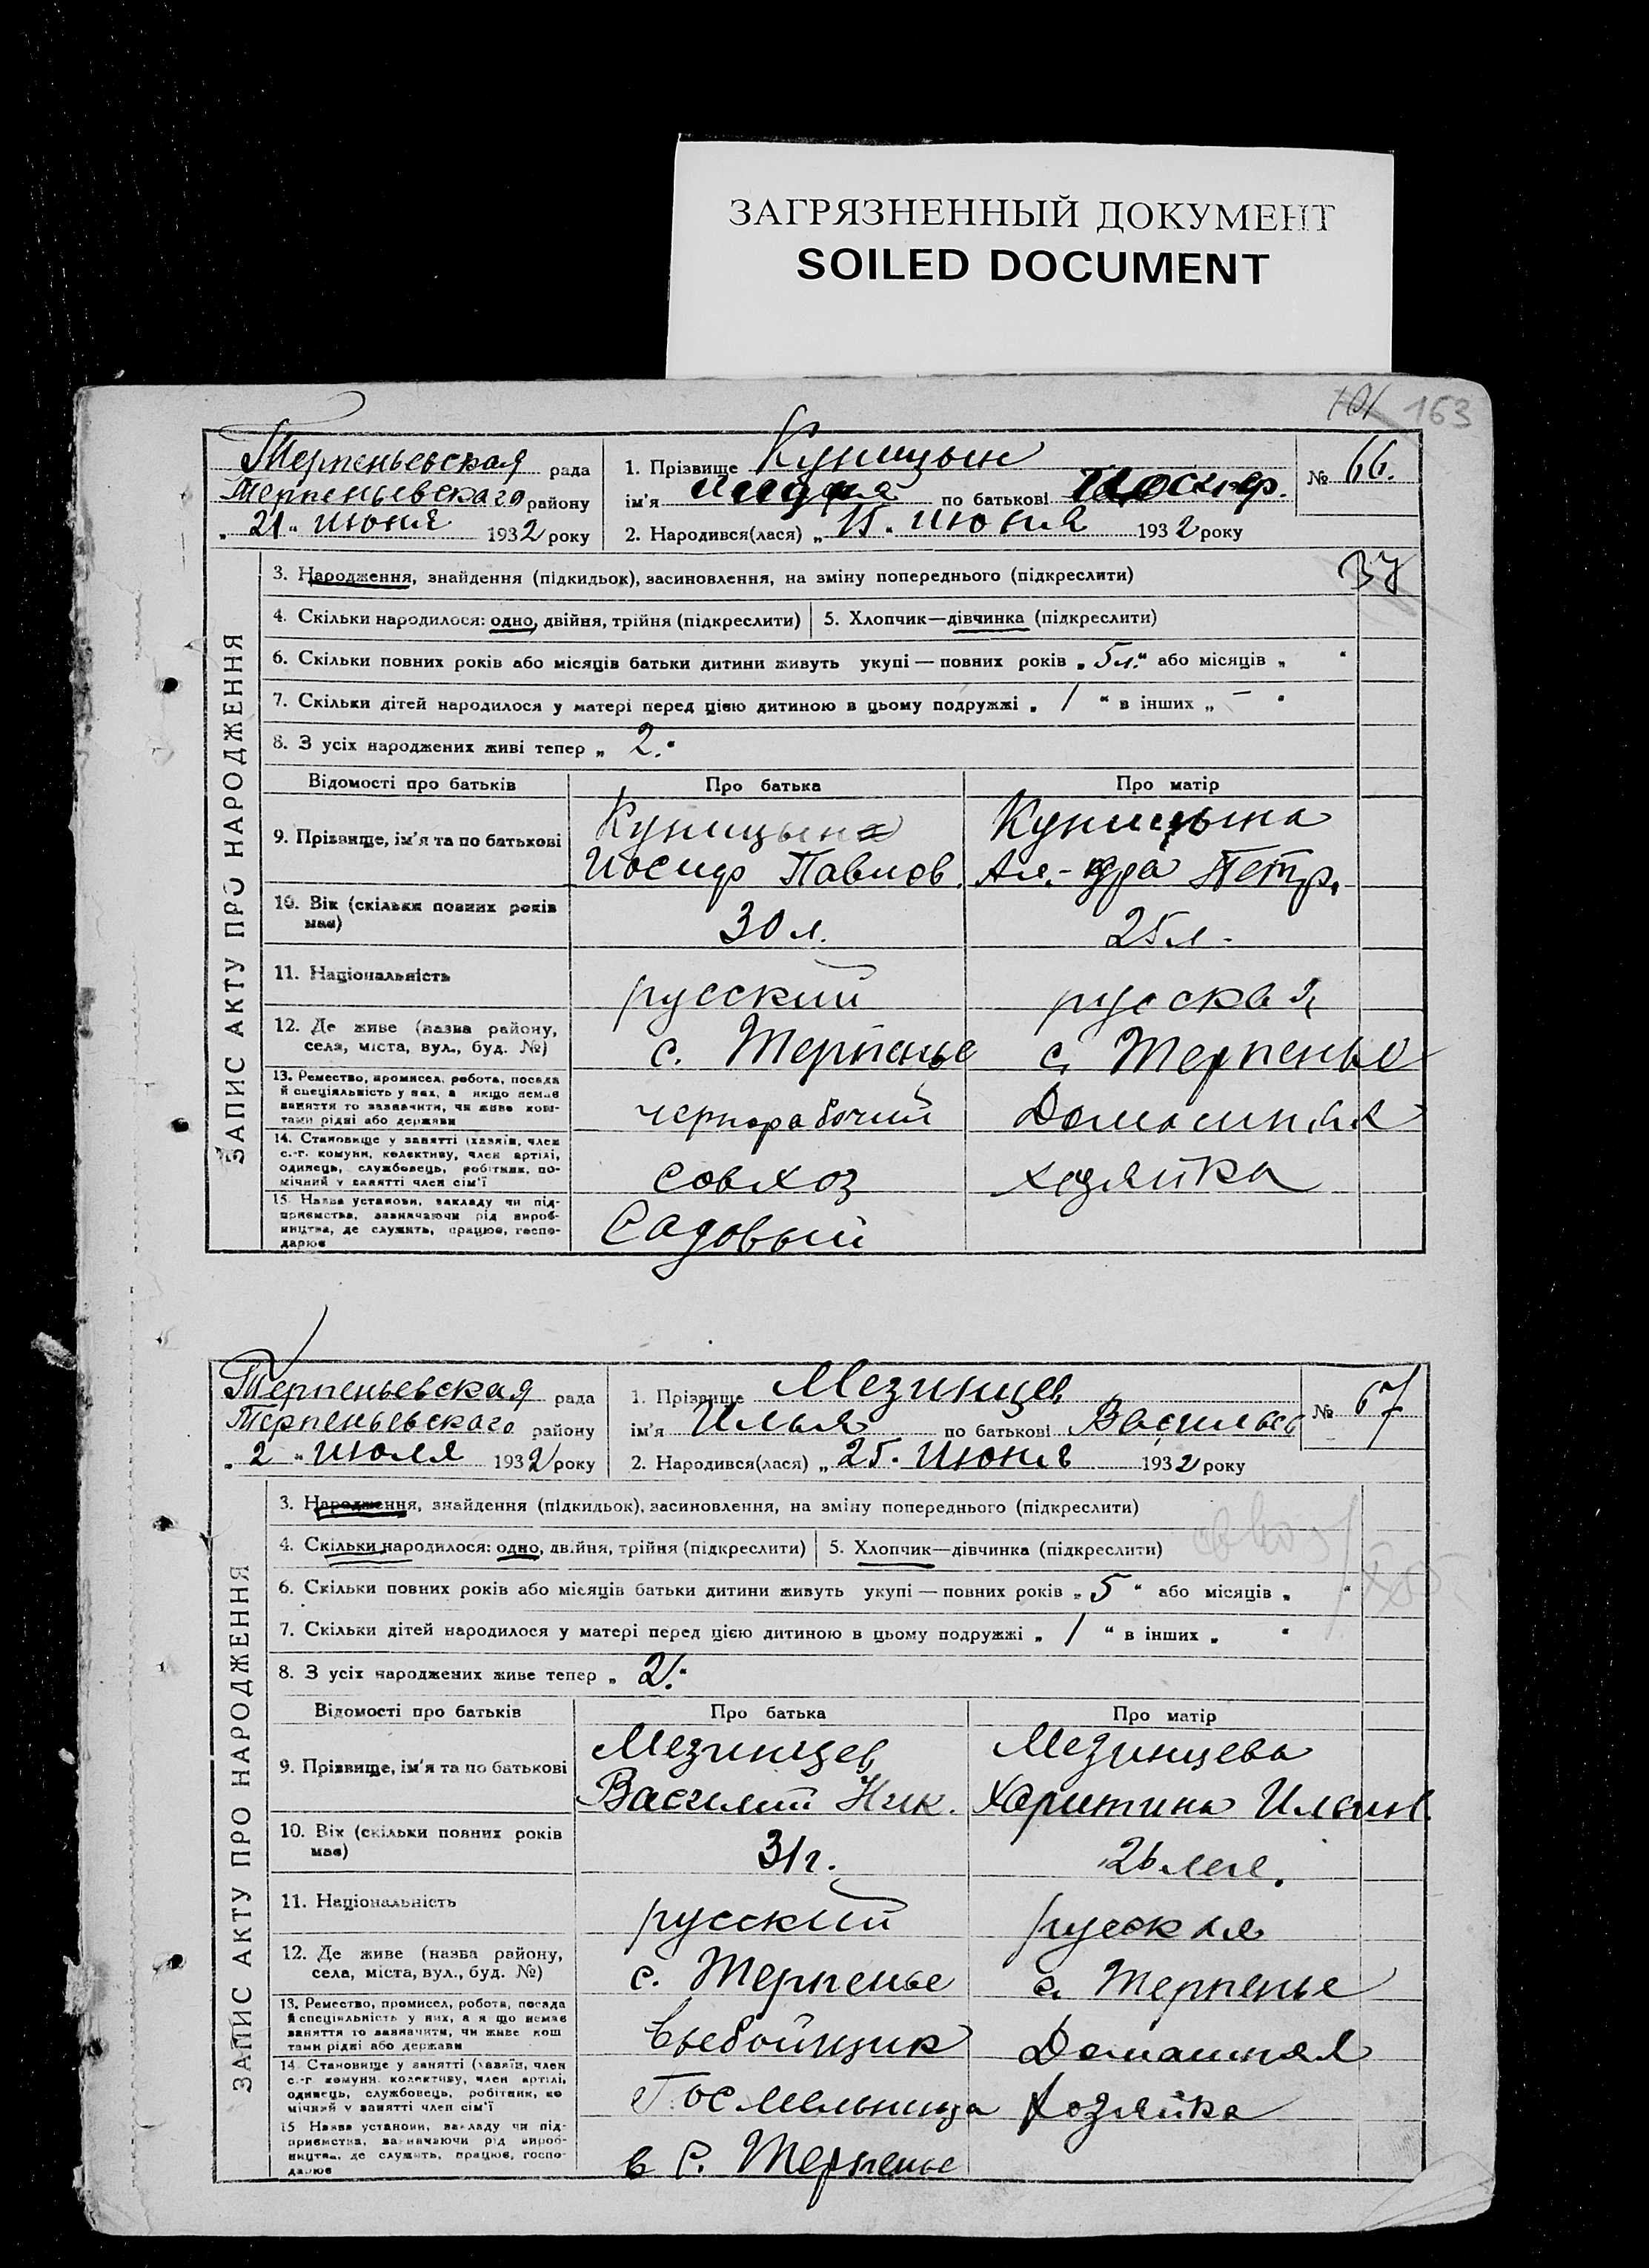 ЗАГРЯЗНЕННЫЙ ДОКУМЕНТ
SOILED DOCUMENT
101 163
ЗАПИС АКТУ ПРО НАРОДЖЕННЯ
Терпеньевская рада
Терпеньевскаго району
„ 21 " июня 1932 року
1. Прізвище Куницын
ім'я по батькові Иосиф.
2. Народився(лася) „ 11 " июня 1932 року
№ 66.
3. Народження, знайдення (підкидьок), засиновлення, на зміну попереднього (підкреслити)
37
4. Скільки народилося: одно, двійня, трійня (підкреслити) 5. Хлопчик—дівчинка (підкреслити)
6. Скільки повних років або місяців батьки дитини живуть укупі — повних років „ 5 л. " або місяців „ "
7. Скільки дітей народилося у матері перед цією дитиною в цьому подружжі „ 1 " в інших „ — "
8. З усіх народжених живі тепер „ 2. "
Відомості про батьків Про батька Про матір
9. Прізвище, ім'я та по батькові
Куницын Куницына
Иосиф Павлов. Ал.-дра Петр.
10. Вік (скільки повних років має)
30 л. 25 л.
11. Національність
русский русская
12. Де живе (назва району, села, міста, вул., буд. №)
с. Терпенье с. Терпенье
13. Ремество, промисел, робота, посада й спеціяльність у них, а якщо немає заняття то зазначити, чи живе коштами рідні або держави
чернорабочий Домашняя
14. Становище у занятті (хазяїн, член с.-г. комуни, колективу, член артілі, одинець, службовець, робітник, помічний у занятті член сім'ї
совхоз хозяйка
15. Назва установи, закладу чи підприємства, зазначаючи рід виробництва, де служить, працює, господарює
Садовый
ЗАПИС АКТУ ПРО НАРОДЖЕННЯ
Терпеньевская рада
Терпеньевскаго району
„ 2 " июля 1932 року
1. Прізвище Мезинцев
ім'я Илья по батькові Васильев
2. Народився(лася) „ 25 " июня 1932 року
№ 67
3. Народження, знайдення (підкидьок), засиновлення, на зміну попереднього (підкреслити)
4. Скільки народилося: одно, двійня, трійня (підкреслити) 5. Хлопчик—дівчинка (підкреслити)
6. Скільки повних років або місяців батьки дитини живуть укупі — повних років „ 5 " або місяців „ "
7. Скільки дітей народилося у матері перед цією дитиною в цьому подружжі „ 1 " в інших „ "
8. З усіх народжених живе тепер „ 2. "
Відомості про батьків Про батька Про матір
9. Прізвище, ім'я та по батькові
Мезинцев Мезинцева
Василий Ник. Харитина Ильин.
10. Вік (скільки повних років має)
31 г. 26 лет.
11. Національність
русский русская
12. Де живе (назва району, села, міста, вул., буд. №)
с. Терпенье с. Терпенье
13. Ремество, промисел, робота, посада й спеціяльність у них, а якщо немає заняття то зазначити, чи живе коштами рідні або держави
выбойщик Домашняя
14. Становище у занятті (хазяїн, член с.-г. комуни, колективу, член артілі, одинець, службовець, робітник, помічний у занятті член сім'ї
Госмельница Хозяйка
15. Назва установи, закладу чи підприємства, зазначаючи рід виробництва, де служить, працює, господарює
в с. Терпенье